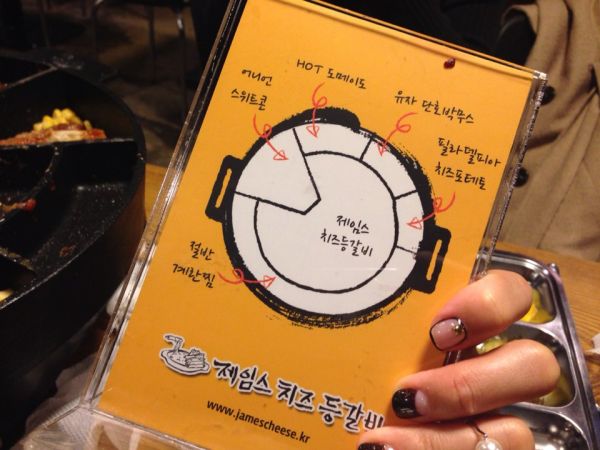 HOT 도메이도
어니언
스위트콘
유자 단호박무스
필라델피아
치즈포테토
제임스
치즈등갈비
절반
계란찜
제임스 치즈 등갈비
www.jamescheese.kr